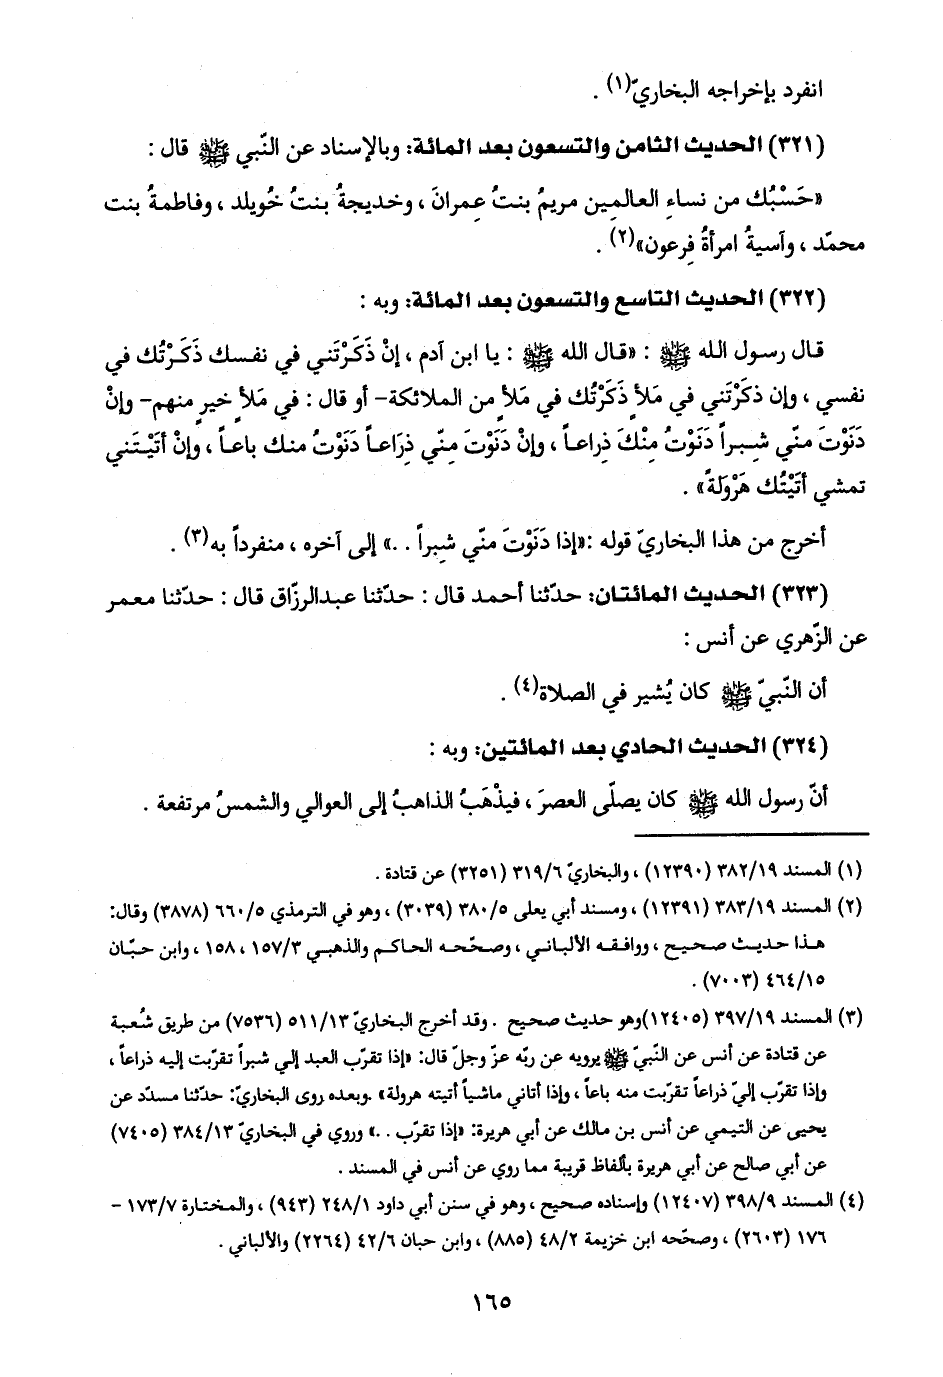 انفرد بإخراجه البخاريّ(١) .
(٣٢١) الحديث الثامن والتسعون بعد المائة: وبالإسناد عن النّبي ﷺ قال :
«حَسْبُك من نساءِ العالمِين مريمُ بنتُ عِمرانَ ، وخديجةُ بنتُ خُويلد ، وفاطمةُ بنت
محمّد ، وآسيةُ امرأةُ فِرعون»(٢) .
(٣٢٢) الحديث التاسع والتسعون بعد المائة: وبه :
قال رسول الله ﷺ : «قال الله ﷺ : يا ابن آدم ، إنْ ذَكَرْتَني في نفسك ذَكَرْتُك في
نفسي ، وإن ذكَرْتَني في مَلأٍ ذَكَرْتُك في مَلأٍ من الملائكة- أو قال : في مَلأٍ خيرٍ منهم- وإنْ
دَنَوْتَ منّي شبراً دَنَوْتُ مِنْكَ ذِراعاً ، وإنْ دَنَوْتَ مِنّي ذِرَاعاً دَنَوْتُ منك باعاً ، وإنْ أتيْتَني
تمشي أتَيْتُك هَرْوَلةً» .
أخرج من هذا البخاريّ قوله :«إذا دَنَوْتَ منّي شبراً . .» إلى آخره ، منفرداً به(٣) .
(٣٢٣) الحديث المائتان: حدّثنا أحمد قال : حدّثنا عبدالرزّاق قال : حدّثنا معمر
عن الزّهري عن أنس :
أن النّبيّ ﷺ كان يُشير في الصلاة(٤) .
(٣٢٤) الحديث الحادي بعد المائتين: وبه :
أنّ رسول الله ﷺ كان يصلّى العصرَ ، فيذْهَبُ الذاهبُ إلى العوالي والشمسُ مرتفعة .
(١) المسند ٣٨٢/١٩ (١٢٣٩٠) ، والبخاريّ ٣١٩/٦ (٣٢٥١) عن قتادة .
(٢) المسند ٣٨٣/١٩ (١٢٣٩١) ، ومسند أبي يعلى ٣٨٠/٥ (٣٠٣٩) ، وهو في الترمذي ٦٦٠/٥ (٣٨٧٨) وقال:
هذا حديث صحيح ، ووافقه الألباني ، وصحّحه الحاكم والذهبي ١٥٧/٣ ، ١٥٨ ، وابن حبّان
٤٦٤/١٥ (٧٠٠٣) .
(٣) المسند ٣٩٧/١٩ (١٢٤٠٥)وهو حديث صحيح . وقد أخرج البخاريّ ٥١١/١٣ (٧٥٣٦) من طريق شُعبة
عن قتادة عن أنس عن النّبيّ ﷺ يرويه عن ربّه عزّ وجلّ قال: «إذا تقرّب العبد إلي شبراً تقرّبت إليه ذراعاً ،
وإذا تقرّب إليّ ذراعاً تقرّبت منه باعاً ، وإذا أتاني ماشياً أتيته هرولة» .وبعده روى البخاريّ: حدّثنا مسدّد عن
يحيى عن التيمي عن أنس بن مالك عن أبي هريرة: «إذا تقرّب . .» وروي في البخاريّ ٣٨٤/١٣ (٧٤٠٥)
عن أبي صالح عن أبي هريرة بألفاظ قريبة مما روي عن أنس في المسند .
(٤) المسند ٣٩٨/٩ (١٢٤٠٧) وإسناده صحيح ، وهو في سنن أبي داود ٢٤٨/١ (٩٤٣) ، والمختارة ١٧٣/٧ -
١٧٦ (٢٦٠٣) ، وصحّحه ابن خزيمة ٤٨/٢ (٨٨٥) ، وابن حبان ٤٢/٦ (٢٢٦٤) والألباني .
١٦٥